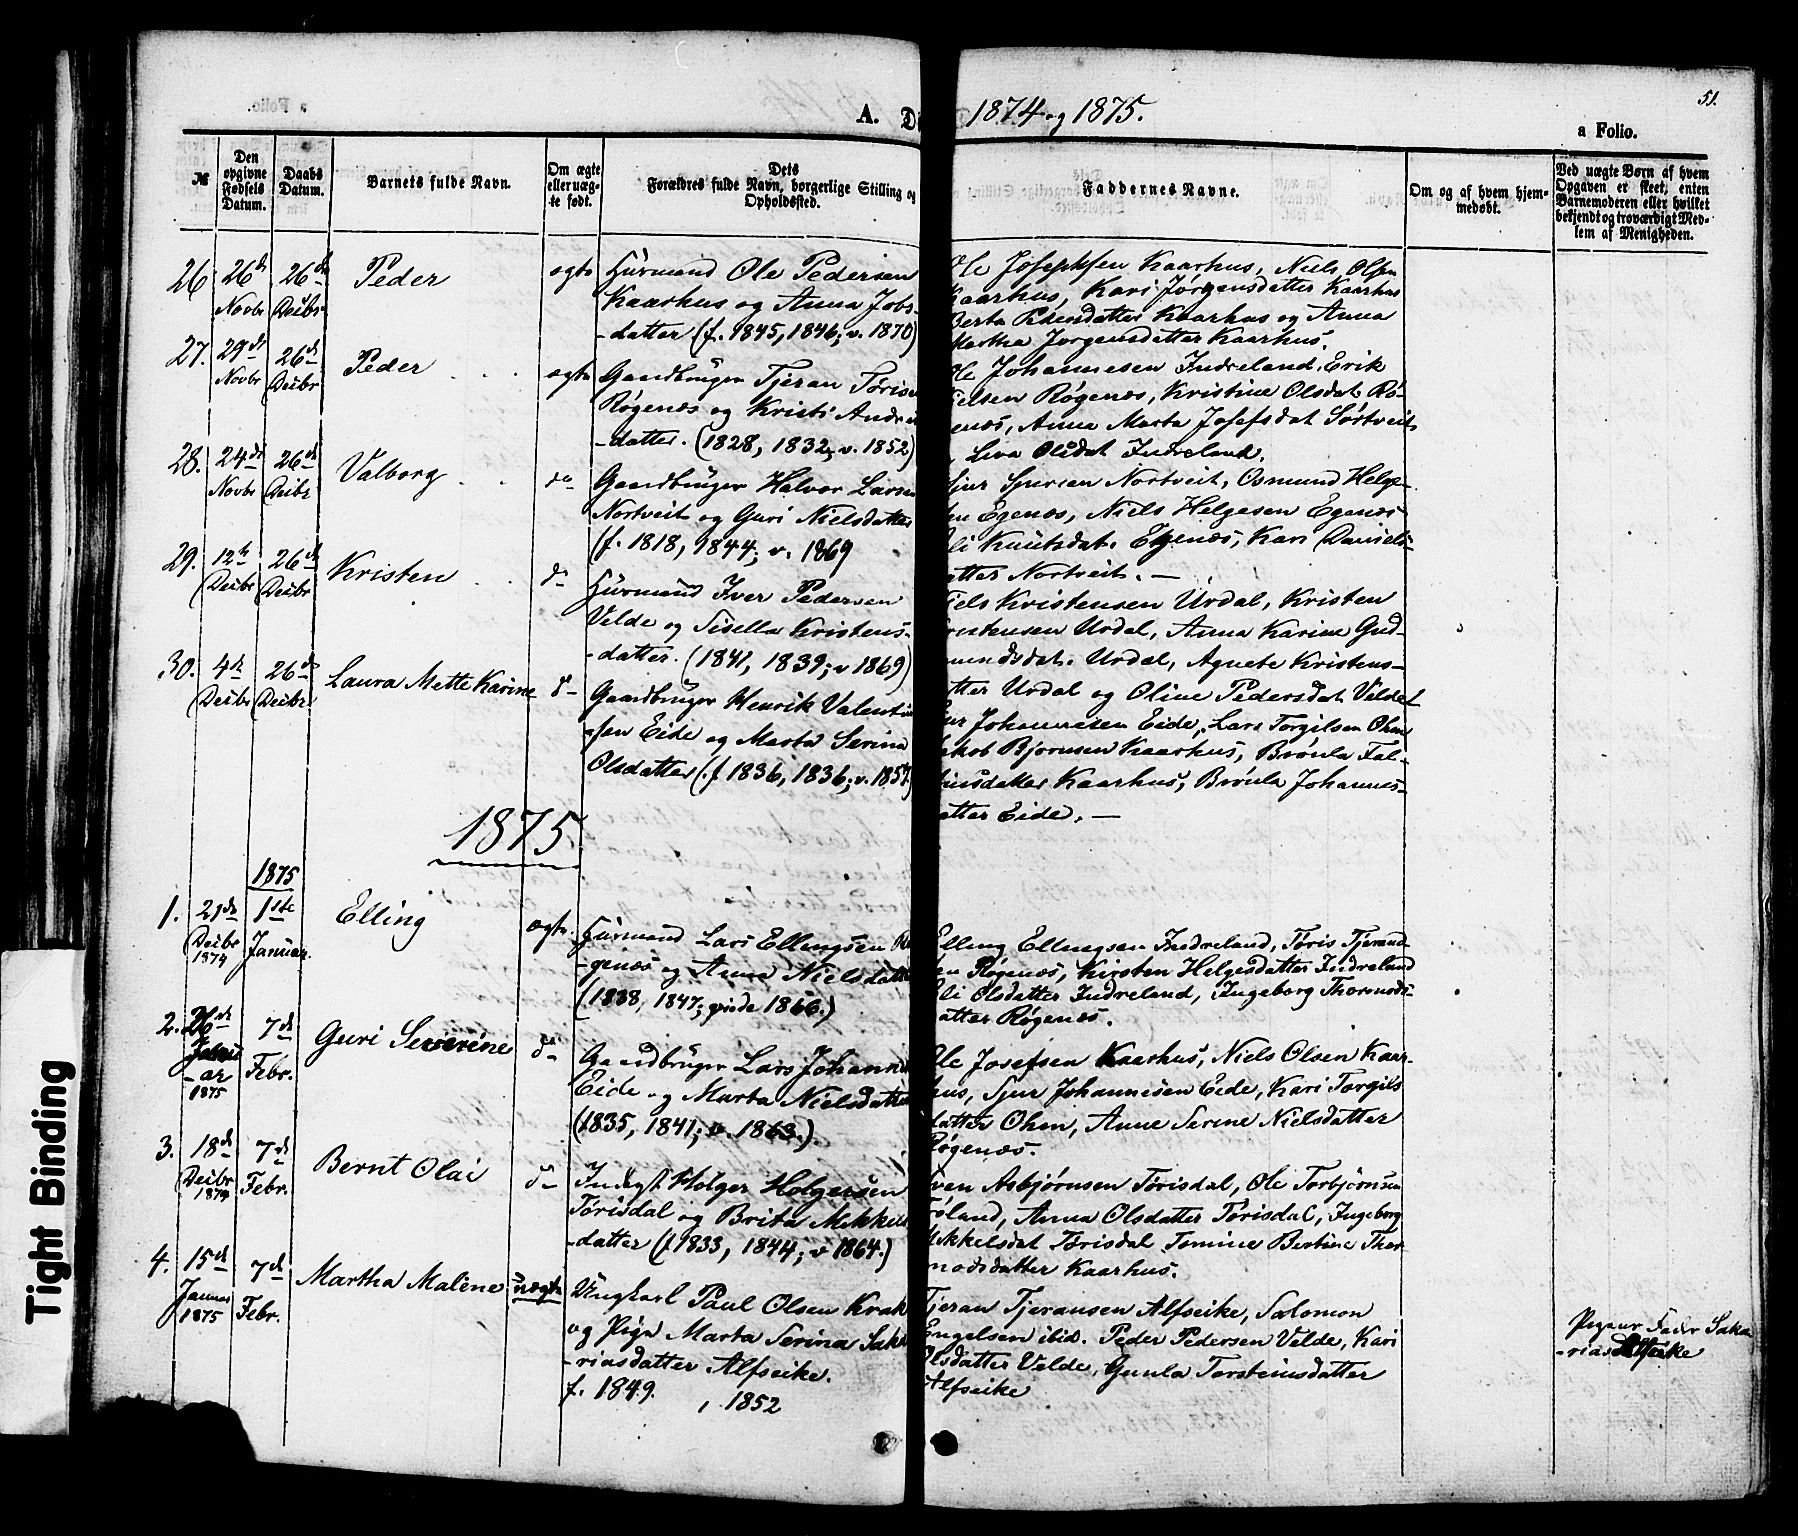 51.
A. D
1874 og 1875.
a Folio.
№
Den opgivne Fødsels Datum.
Daabs Datum.
Barnets fulde Navn.
Om ægte eller uægte født.
Dets Forældres fulde Navn, borgerlige Stilling og Opholdssted.
Faddernes Navne.
Om og af hvem hjemmedøbt.
Ved uægte Børn af hvem Opgaven er skeet, enten Barnemoderen eller hvilket bekjendt og troværdigt Medlem af Menigheden.
26 26de Novbr 26de Decbr Peder ægte
Huusmand Ole Pedersen
Kaarhus og Anna Jobs-
-datter (f. 1845, 1846; v. 1870)
Ole Josephsen Kaarhus, Niels Olsen
Kaarhus, Kari Jørgensdatter Kaarhus
Berta Pedersdatter Kaarhus og Anna
Martha Jørgensdatter Kaarhus.
27. 29de Novbr 26de Decbr Peder ægte
Gaardbruger Tjeran Tøris
Røgenæs og Kristi Andre
-datter. (1828, 1832, v. 1852)
Johannesen Indreland, Erik
elsen Røgenæs, Kristine Olsdat. Rø-
enæs, Anna Marta Josefsdat Sørtveit
Liva Olsdat Indreland.
28. 24de Novbr 26de Decbr Valborg do
Gaardbruger Halvor Larsen
Nortveit og Guri Nielsdatter
(f. 1818, 1844; v. 1869
Sjur Sjursen Nortveit, Osmund Helge-
sen Egenæs, Niels Helgesen Egenæs
Knutsdat. Egenæs, Kari Daniels-
atter Nortveit. —
29. 12te Decbr 26de Decbr Kristen do
Huusmand Iver Pedersen
Velde og Sisella Kristens-
-datter. (1841, 1839; v 1869)
Niels Kristensen Urdal, Kristen
ristensen Urdal, Anna Karine Gud-
mundsdat. Urdal, Agnete Kristens-
atter Urdal og Oline Pedersdat Velde
30. 4de Decbr 26de Decbr Laura Mette Karine do
Gaardbruger Henrik Valentin
-sen Eide og Marta Serina
Olsdatter (f 1836, 1836; v. 1857.)
Johannesen Eide, Lars Torgilsen Ohm
Jakob Bjørnsen Kaarhus, Brønla Fal-
datter Kaarhus, Brønla Johannes-
atter Eide. —
1875
1875
1. 21de Decbr 1874 1ste Januar. Elling ægte.
Huusmand Lars Ellingsen Rø
-genæs og Anna Nielsdatter
(1838, 1847; viede 1866.)
Elling Ellingsen Indreland, Tøris Tjerand-
sen Røgenæs, Kirsten Helgesdatter Indreland
Olsdatter Indreland, Ingeborg Thormods-
atter Røgenæs.
2. 26de Janu-ar 1875 7de Febr. Guri Severine do
Gaardbruger Lars Johanne
Eide og Marta Nielsdatter
(1835, 1841; v. 1863.)
Ole Josefsen Kaarhus, Niels Olsen Kaar-
hus, Sjur Johannesen Eide, Kari Torgils
datter Ohm, Anne Serine Nielsdatter
Røgenæs.
3. 18de Decbr 1874 7de Febr. Bernt Olai do
Inderst Holger Holgersen
Tørisdal og Brita Mikkels
-datter (f 1833, 1844; v 1864.)
Sven Asbjørnsen Tørisdal, Ole Torbjørnsen
Anna Olsdatter Tørisdal, Ingeborg
Mikkelsdat Tørisdal Tomine Bertine Thor
modsdatter Kaarhus.
4. 15de Januar 1875 7de Febr. Martha Malene uægte
Ungkarl Paul Olsen Krak
og Pige Marta Serina Saka
-riasdatter Alfseike.
f. 1849. , 1852
Tjeran Tjeransen Alfseike, Salomon
Engelsen ibid. Peder Pedersen Velde, Kari
Olsdatter Velde, Gunla Torsteinsdatter
Alfseike
Pigens Fader Saka
-rias Alfseike
Tight Binding